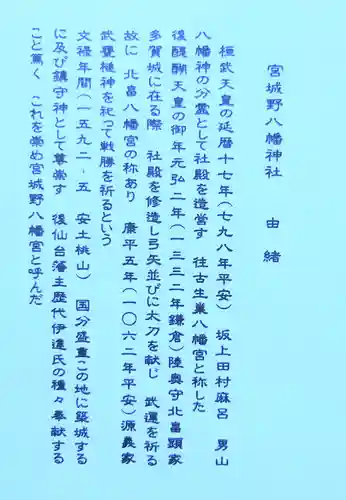 宮城野八幡神社　由緒
桓武天皇の延暦十七年（七九八年平安）　坂上田村麻呂　男山
八幡神の分霊として社殿を造営す　往古生巣八幡宮と称した
後醍醐天皇の御年元弘二年（一三三二年鎌倉）陸奥守北畠顕家
多賀城に在る際　社殿を修造し弓矢並びに太刀を献じ　武運を祈る
故に　北畠八幡宮の称あり　康平五年（一〇六二年平安）源義家
武甕槌神を祀って戦勝を祈るという
文禄年間（一五九二－五　安土桃山）　国分盛重この地に築城する
に及び鎮守神として尊崇す　後仙台藩主歴代伊達氏の種々奉献する
こと篤く　これを崇め宮城野八幡宮と呼んだ